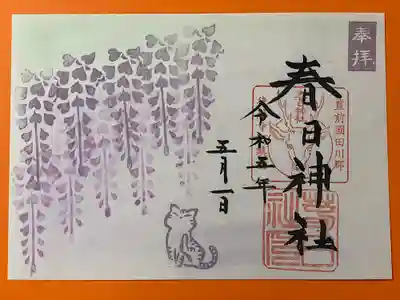 奉拝
春日神社
豊前國田川郡
令和五年
五月一日